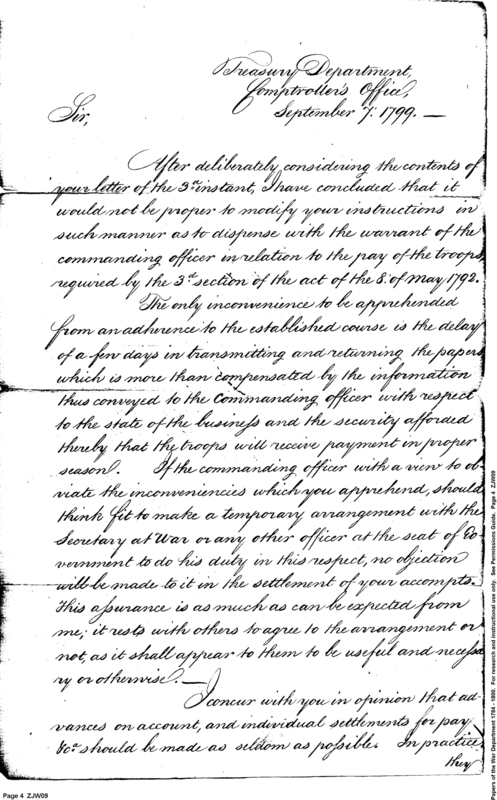 Treasury Department,
Comptroller's Office,
September 7: 1799. —
Sir,
After deliberately considering the contents of
your letter of the 3rd instant, I have concluded that it
would not be proper to modify your instructions in
such manner as to dispense with the warrant of the
commanding officer in relation to the pay of the troops,
required by the 3rd section of the act of the 8th of May 1792.
The only inconvenience to be apprehended
from an adherence to the established course is the delay
of a few days in transmitting and returning the papers
which is more than compensated by the information
thus conveyed to the Commanding officer with respect
to the state of the business and the security afforded
thereby that the troops will receive payment in proper
season. If the commanding officer with a view to ob-
viate the inconveniencies which you apprehend, should
think fit to make a temporary arrangement with the
Secretary at War or any other officer at the seat of Go-
vernment to do his duty in this respect, no objection
will be made to it in the settlement of your accompts.
This assurance is as much as can be expected from
me; it rests with others to agree to the arrangement or
not, as it shall appear to them to be useful and necessa
ry or otherwise. —
I concur with you in opinion that ad-
vances on account, and individual settlements for pay
&ca should be made as seldom as possible. In practice
they
Page 4 ZJW09
Papers of the War Department 1784 - 1800. For research and instructional use only. See Permissions Guide. Page 4 ZJW09